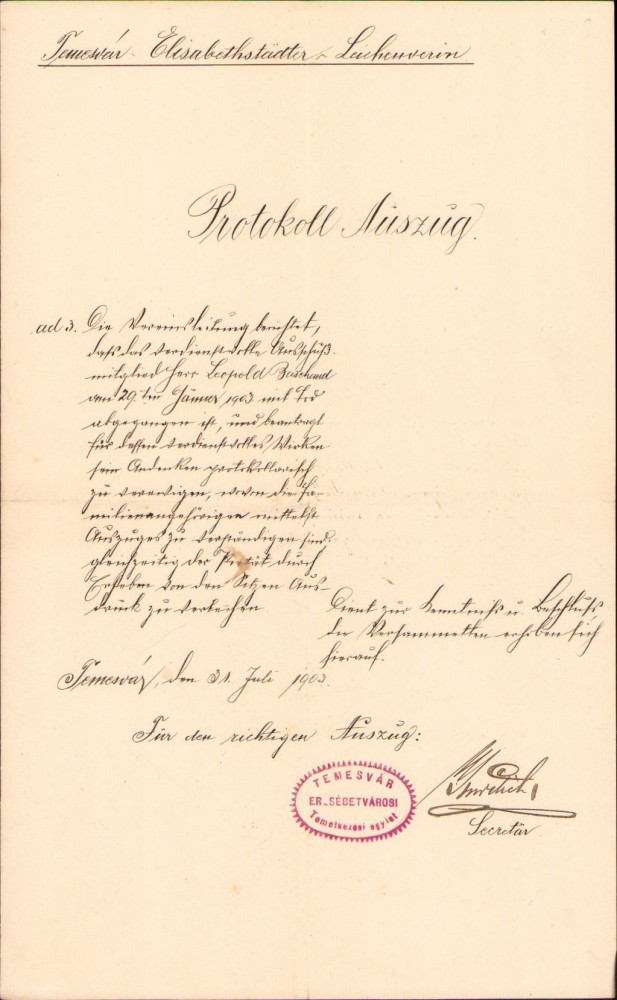 Temesvár - Elisabethstädter - Leichenverin
Protokoll Auszug.
ad 3. Die Vereinsleitung berichtet,
daß das verdienstvolle Ausschuß-
mitglied Herr Leopold
am 29. ten Jänner 1903 mit Tod
abgegangen ist, und beantragt
für dessen verdienstvolles Wirken
sein Andenken protokollarisch
zu verewigen, wovon die Fa-
milienangehörigen mittelst
Auszuges zu verständigen sind,
gleichzeitig der Pietät durch
Erheben von den Sitzen Aus-
druck zu verleihen
Dient zur Kenntniß u. Beschluß
die Versammelten erhoben sich
hierauf.
Temesvár, den 31. Juli 1903.
Für den richtigen Auszug:
TEMESVÁR
ER_SÉBETVÁROSI
Temetkezési egylet
Secretär